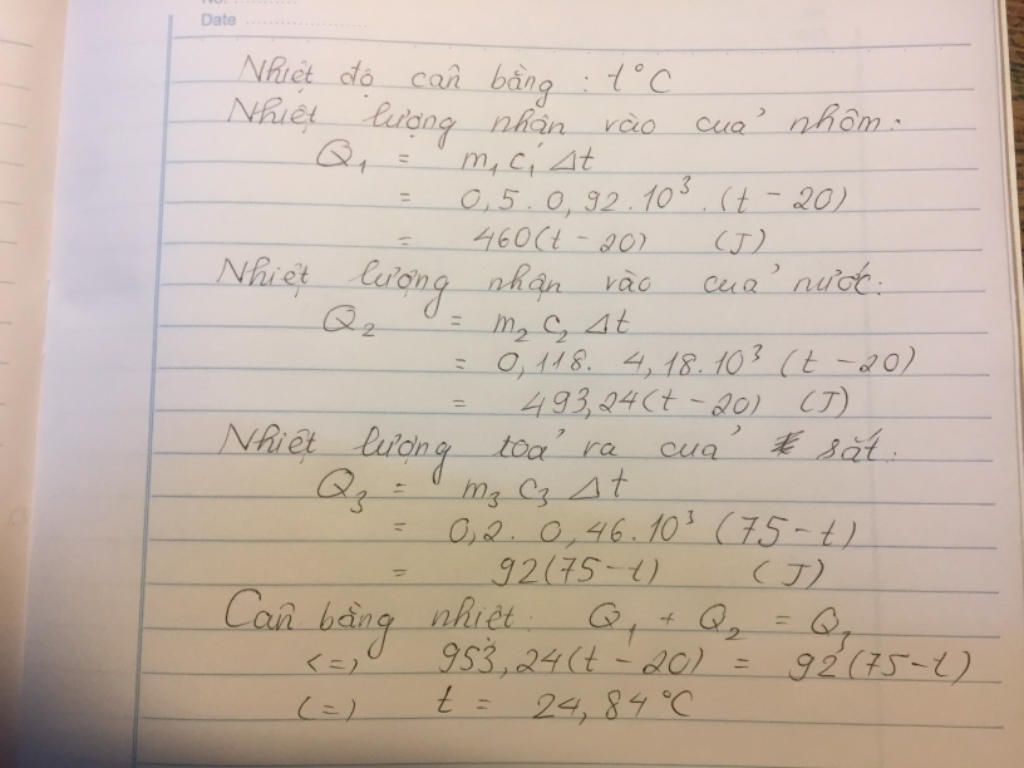 No. ............
Date ....................
Nhiệt độ cân bằng : t°C
Nhiệt lượng nhận vào của nhôm:
Q₁ = m₁c₁Δt
= 0,5 . 0,92 . 10³ . (t - 20)
= 460(t - 20) (J)
Nhiệt lượng nhận vào của nước:
Q₂ = m₂c₂Δt
= 0,118. 4,18.10³ (t - 20)
= 493,24(t - 20) (J)
Nhiệt lượng toả ra của sắt:
Q₃ = m₃c₃Δt
= 0,2. 0,46.10³ (75 - t)
= 92(75 - t) (J)
Cân bằng nhiệt: Q₁ + Q₂ = Q₃
<=> 953,24(t - 20) = 92(75 - t)
(=) t = 24,84°C